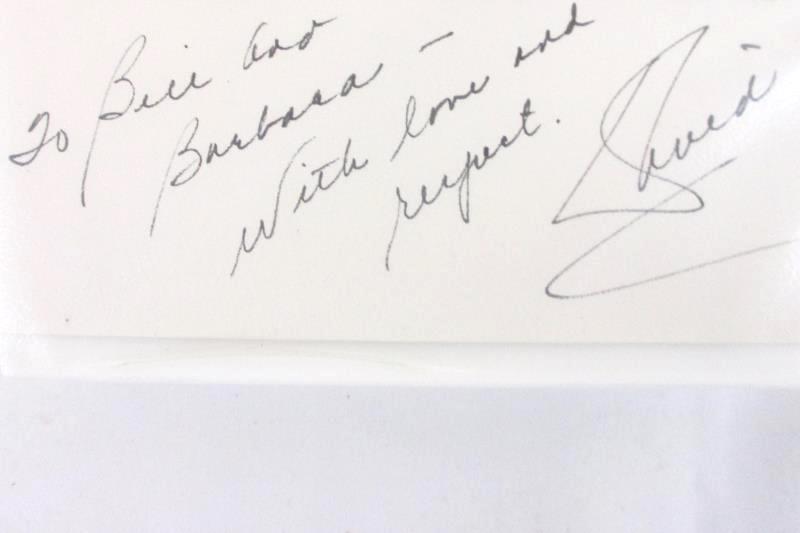 To Bill and
Barbara —
With love and
respect.
David